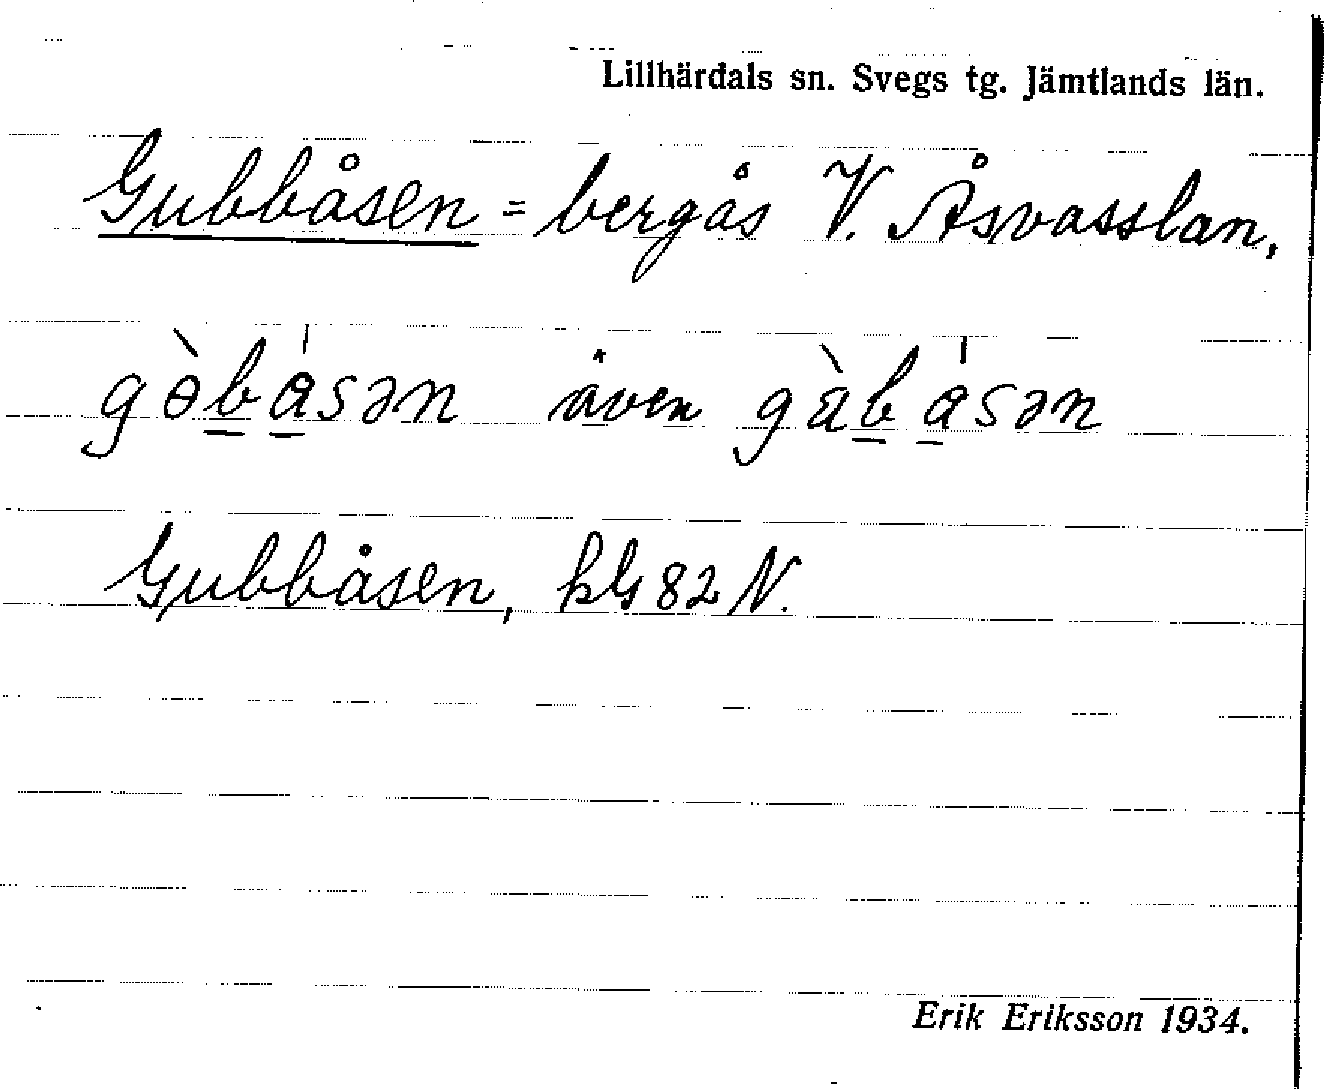 Lillhärdals sn. Svegs tg. Jämtlands län.
Gubbåsen = bergås V. Åsvasslan,
gòbåsən även gàbåsən
Gubbåsen, kG 82 N.
Erik Eriksson 1934.